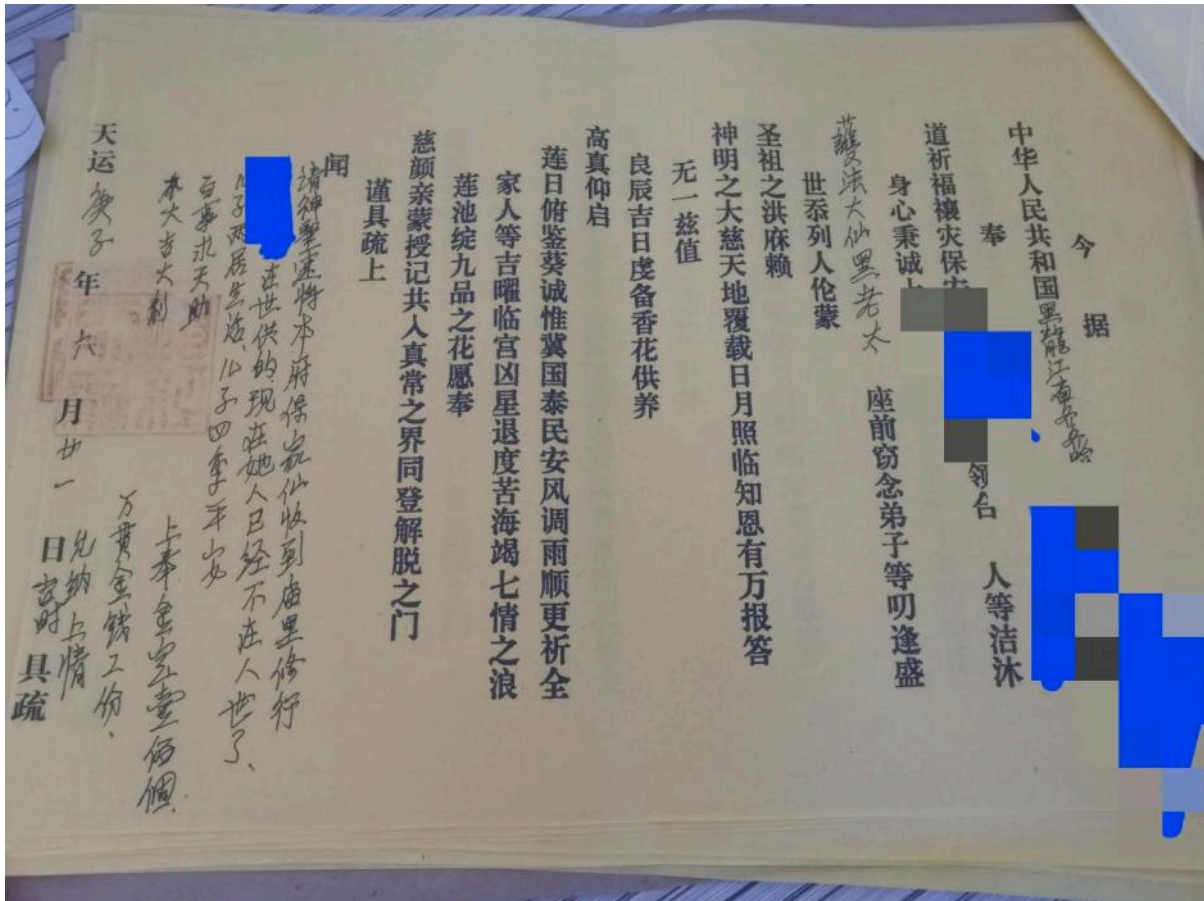 今据
中华人民共和国黑龍江省
奉
人等洁沐
道祈福禳灾保安
领合
身心秉诚上
護法大仙黑老太 座前窃念弟子等叨逢盛
世忝列人伦蒙
圣祖之洪庥赖
神明之大慈天地覆载日月照临知恩有万报答
无一兹值
良辰吉日虔备香花供养
高真仰启
莲日俯鉴葵诚惟冀国泰民安风调雨顺更祈全
家人等吉曜临宫凶星退度苦海竭七情之浪
莲池绽九品之花愿奉
慈颜亲蒙授记共入真常之界同登解脱之门
谨具疏上
闻
请神聖速将本府保家仙收到庙里修行
在世供的现在她人已经不在人世了、
儿子两居生活、儿子四季平安
百事求天助
大吉大利
上奉金宝壹佰個
万贯金钱工份、
允纳上情
天运庚子年六月廿一日吉时具疏